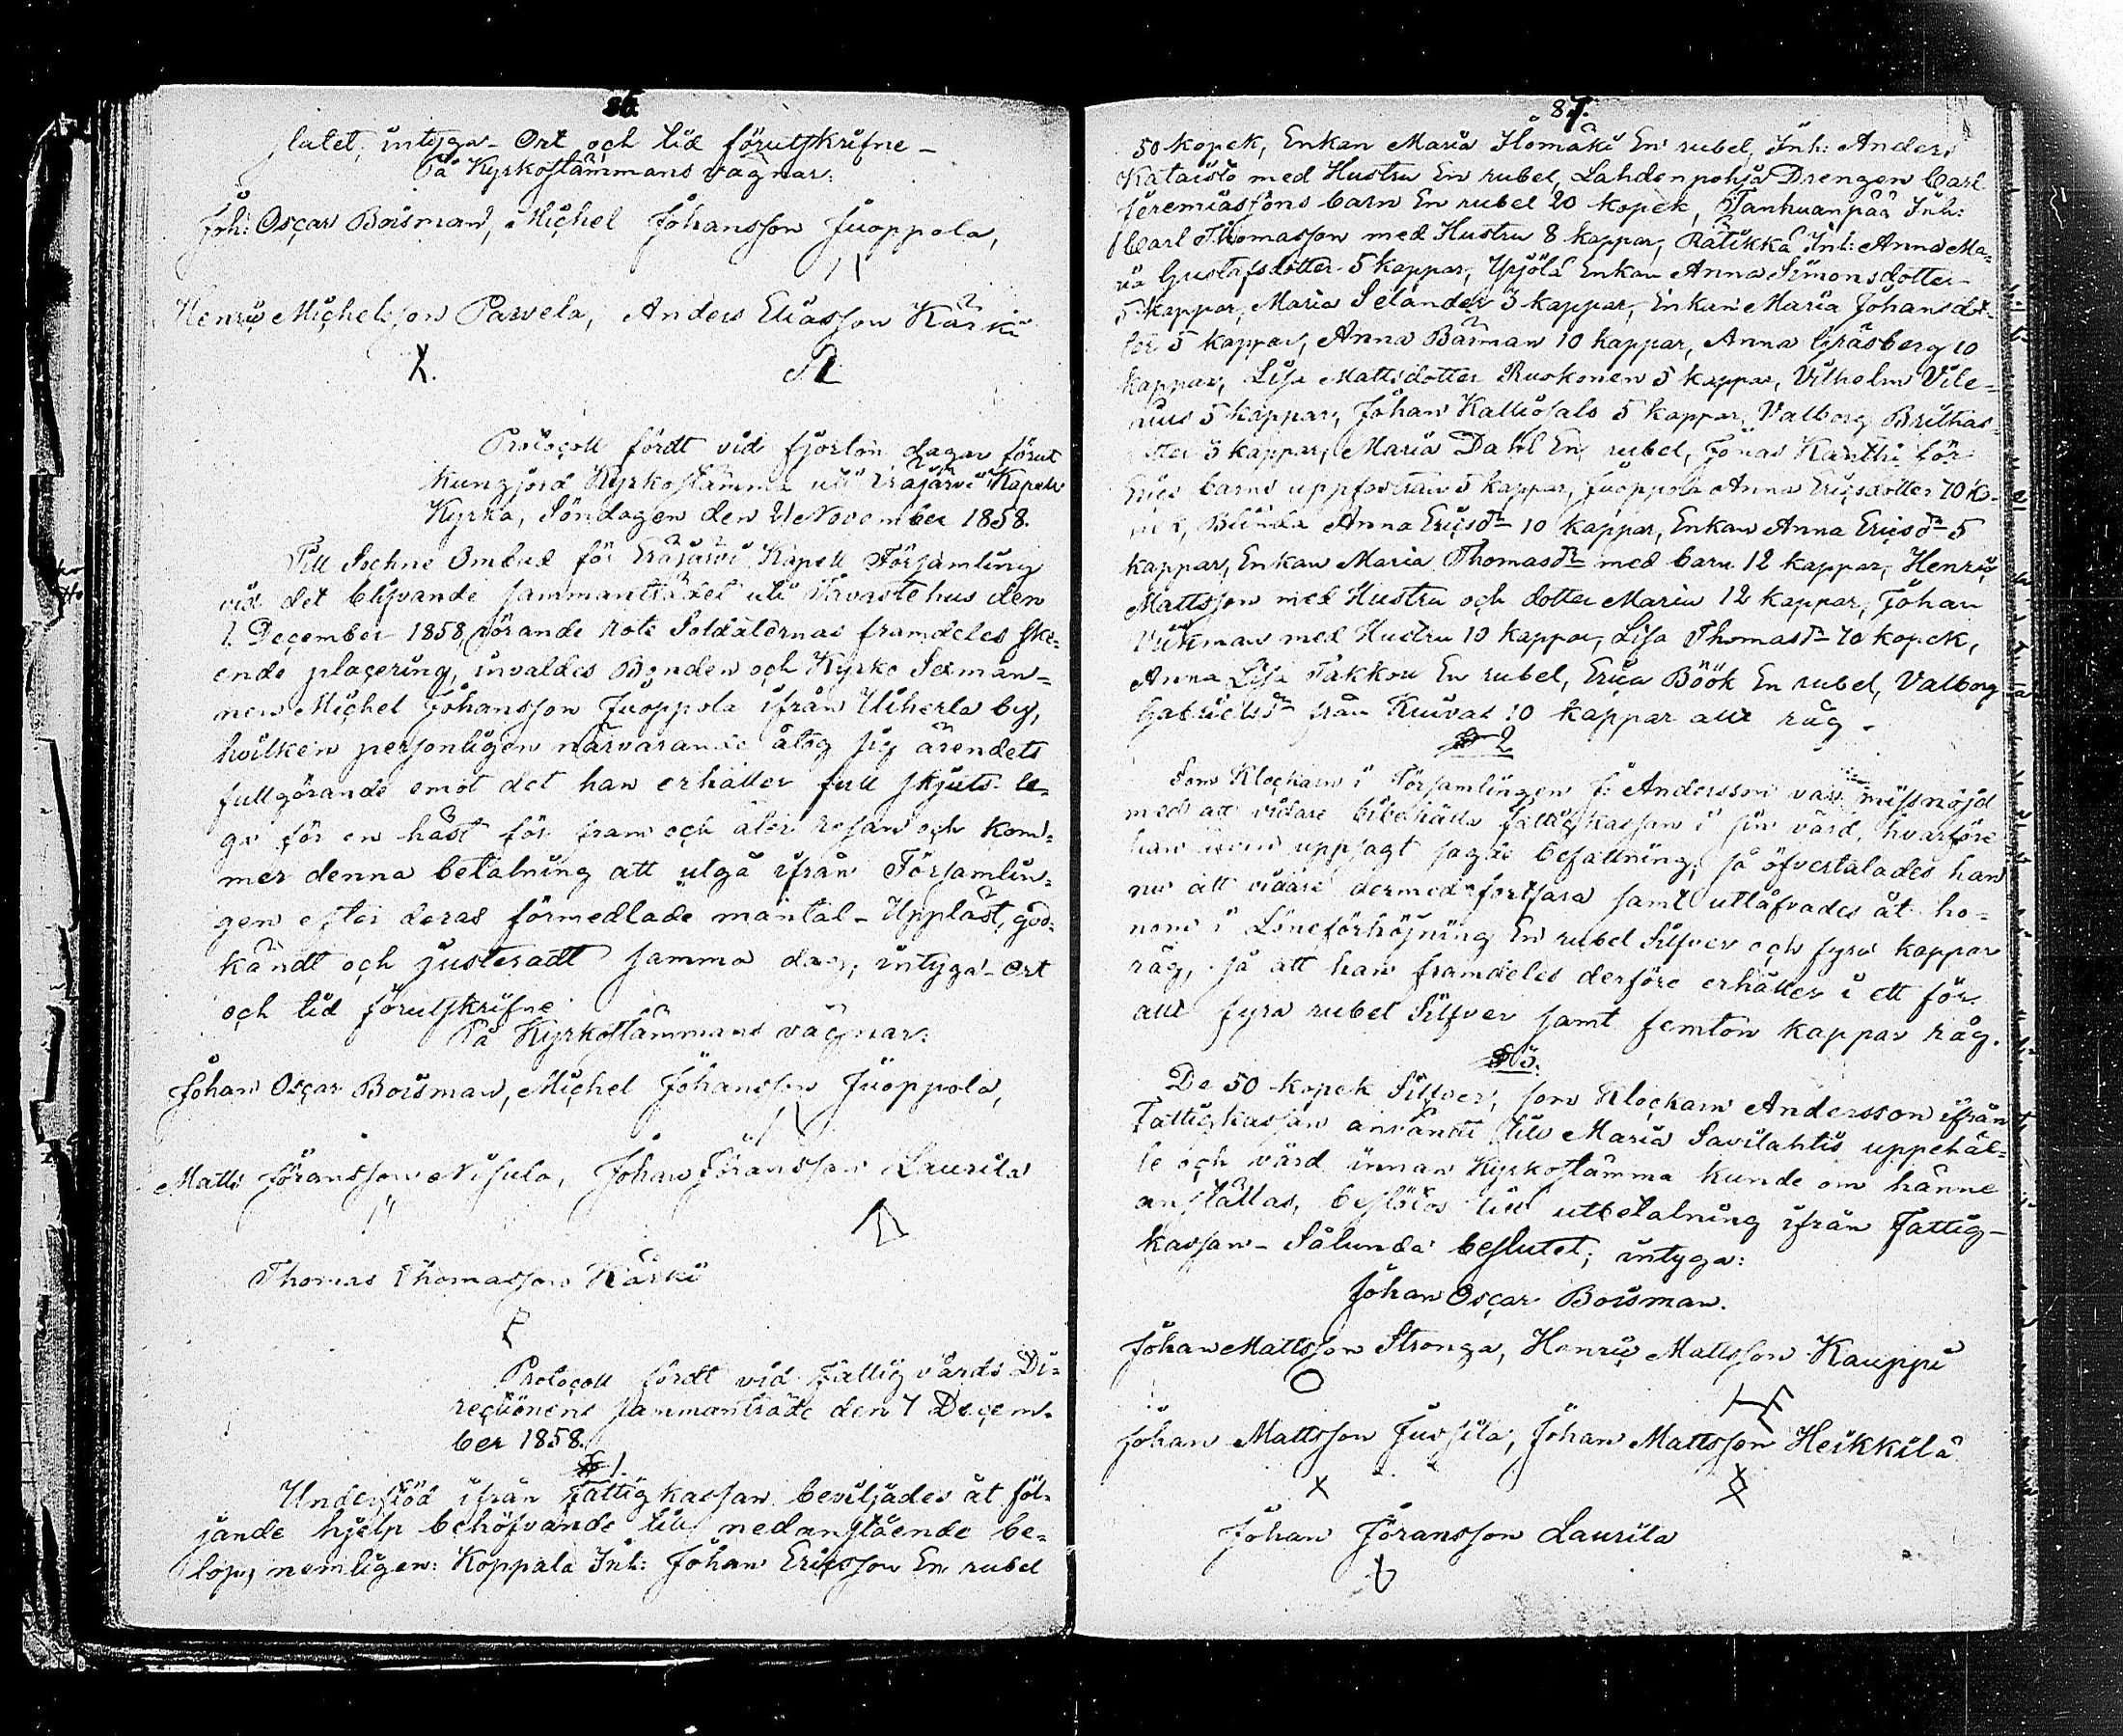 86.
slutet, intyga - Ort och tid förutskrifne -
På Kyrkostämmans vägnar:
Joh: Oscar Boisman, Michel Johansson Juoppola,
Henric Michelsson Parvela, Anders Eliasson Kärki
Protocoll fördt vid fjorton dagar förut
kungjord Kyrkostämma uti Eräjärvi Kapell
Kyrka, Söndagen den 21 November 1858.
Till Sockne Ombud för Eräjärvi Kapell Församling
vid det blifvande sammanträdet uti Tavastehus den
1 December 1858, rörande Rote Soldaternas framdeles ske-
ende placering, invaldes Bonden och Kyrko Sexman-
nen Michel Johansson Juoppola ifrån Uiherla by,
hvilken personligen närvarande åtog sig ärendets
fullgörande emot det han erhåller full skjuts le-
ga för en häst för fram och åter resan och kom-
mer denna betalning att utgå ifrån Församlin-
gen efter deras förmedlade mantal - Uppläst, god-
kändt och justeradt samma dag, intyga - Ort
och tid förutskrifne
På Kyrkostämmans vägnar:
Johan Oscar Boisman, Michel Johansson Juoppola,
Matts Jöransson Nisula, Johan Jöransson Laurila
Thomas Thomasson Kärki
Protocoll fördt vid Fattigvårds Di-
rectionens sammanträde den 7 Decem-
ber 1858.
§ 1.
Understöd ifrån Fattigkassan beviljades åt föl-
jande hjelp behöfvande till nedanstående be-
lopp, nemligen: Koppala Inh: Johan Ericsson En rubel
87.
50 kopek, Enkan Maria Ilomäki En rubel, Inh: Anders
Kataisto med Hustru En rubel, Lahdenpohja Drengen Carl
Jeremiassons barn En rubel 20 kopek, Tanhuanpää Inh:
Carl Thomasson med Hustru 8 kappar, Rätikkä Inh: Anna Ma-
ria Gustafsdotter 5 kappar, Yrjölä Enkan Anna Simonsdotter
5 kappar, Maria Selander 3 kappar, Enkan Maria Johansdot-
ter 5 kappar, Anna Bärman 10 kappar, Anna Gräsberg 10
kappar, Lisa Mattsdotter Ruokonen 5 kappar, Vilhelm Vile-
nius 5 kappar, Johan Kalliosalo 5 kappar, Valborg
5 kappar, Maria Dahl En rubel, Jonas Kanthi för
Erics barns uppfostran 5 kappar, Juoppola Anna Ericsdotter 70 ko-
pek, Anna Ericsdr 10 kappar, Enkan Anna Ericsdr 5
kappar, Enkan Maria Thomasdr med barn 12 kappar, Henric
Mattsson med Hustru och dotter Maria 12 kappar, Johan
Vikman med Hustru 10 kappar, Lisa Thomasdr 70 kopek,
Anna Lisa Takkou En rubel, Erica Böök En rubel, Valborg
Gabrielsdr från Kuivas 10 kappar allt råg.
§ 2
Som Klockarn i Församlingen J: Andersson var missnöjd
med att vidare bibehålla fattigkassan i sin vård, hvarföre
han även uppsagt sagde befattning, så öfvertalades han
nu att vidare dermed fortfara samt utlåfvades åt ho-
nom i Löneförhöjning En rubel Silfver och fyra kappar
råg, så att han framdeles derföre erhåller i ett för
allt fyra rubel Silfver samt femton kappar råg.
§ 3.
De 50 kopek Silfver, som Klockarn Andersson ifrån
Fattigkassan användt till Maria Savilahtis uppehäl-
le och vård innan Kyrkostämma kunde om hänne
anställas, beslötos till utbetalning ifrån Fattig-
kassan - Sålunda beslutet; intyga:
Johan Oscar Boisman.
Johan Mattsson Stronga, Henric Mattsson Kauppi
Johan Mattsson Jussila, Johan Mattsson Heikkilä
Johan Jöransson Laurila